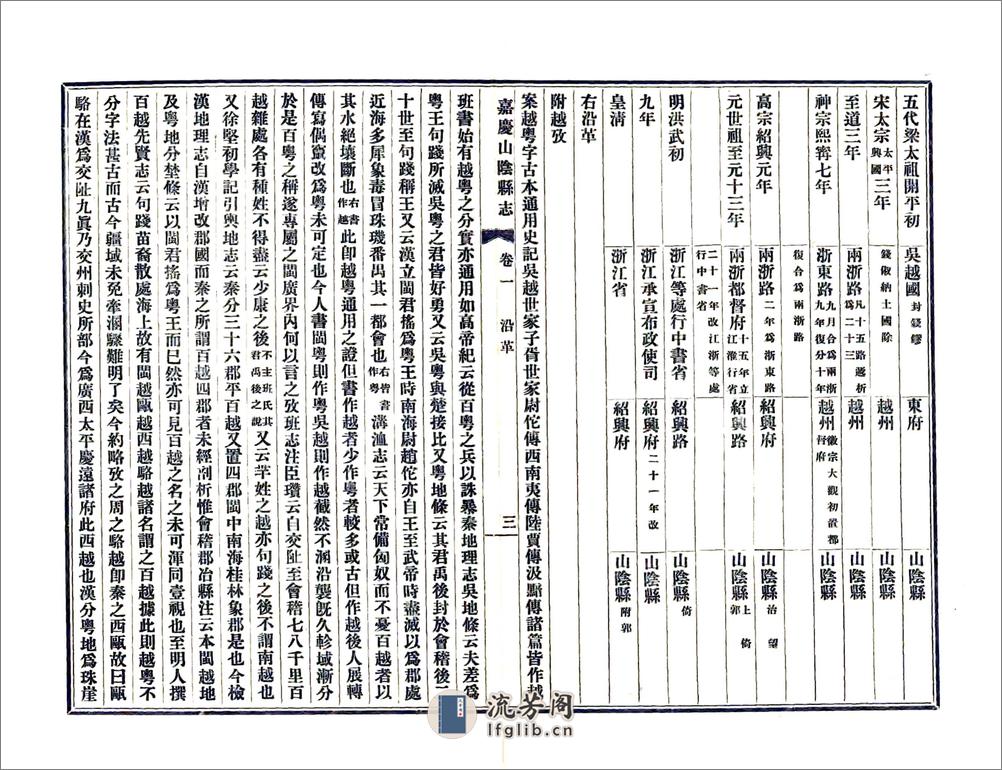 五代梁太祖開平初 吳越國封錢鏐 東府 山陰縣
宋太宗太平興國三年 錢俶納土國除 越州 山陰縣
至道三年 兩浙路凡十五路遞析爲二十三 越州 山陰縣
神宗熙甯七年 浙東路九月合爲兩浙九年復分十年 越州徽宗大觀初置都督府 山陰縣
復合爲兩浙路
高宗紹興元年 兩浙路二年爲浙東路 紹興府 山陰縣治望
元世祖至元十三年 兩浙都督府十五年立江淮行省 紹興路 山陰縣上倚郭
二十一年改江浙等處行中書省
明洪武初 浙江等處行中書省 紹興路 山陰縣倚
九年 浙江承宣布政使司 紹興府二十一年改 山陰縣
皇清 浙江省 紹興府 山陰縣附郭
右沿革
附越攷
案越粤字古本通用史記吳越世家子胥世家尉佗傳西南夷傳陸賈傳汲黯傳諸篇皆作越
嘉慶山陰縣志 卷一 沿革 三
班書始有越粤之分實亦通用如高帝紀云從百粤之兵以誅暴秦地理志吳地條云夫差爲
粤王句踐所滅吳粤之君皆好勇又云吳粤與楚接比又粤地條云其君禹後封於會稽後二
十世至句踐稱王又云漢立閩君搖爲粤王時南海尉趙佗亦自王至武帝時盡滅以爲郡處
近海多犀象毒冒珠璣番禺其一都會也右皆書作粤溝洫志云天下常備匈奴而不憂百越者以
其水絕壤斷也右書作越此卽越粤通用之證但書作越者少作粤者較多或古但作越後人展轉
傳寫偶竄改爲粤未可定也今人書閩粤則作粤吳越則作越截然不溷沿襲旣久軫域漸分
於是百粤之稱遂專屬之閩廣界內何以言之攷班志注臣瓚云自交阯至會稽七八千里百
越雜處各有種姓不得盡云少康之後不主班氏其君禹後之說又云芉姓之越亦句踐之後不謂南越也
又徐堅初學記引輿地志云秦分三十六郡平百越又置四郡閩中南海桂林象郡是也今檢
漢地理志自漢增改郡國而秦之所謂百越四郡者未經剖析惟會稽郡治縣注云本閩越地
及粤地分埜條云以閩君搖爲粤王而巳然亦可見百越之名之未可渾同壹視也至明人撰
百越先賢志云句踐苗裔散處海上故有閩越甌越西越駱越諸名謂之百越據此則越粤不
分字法甚古而古今疆域未免牽溷驟難明了矣今約略攷之周之駱越卽秦之西甌故曰甌
駱在漢爲交阯九眞乃交州刺史所部今爲廣西太平慶遠諸府此西越也漢分粤地爲珠崖
流芳阁
lfglib.cn